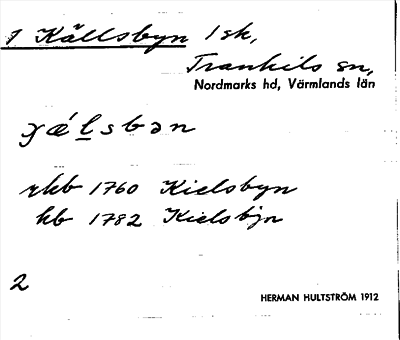 1 Källsbyn 1 sk,
Trankils sn,
Nordmarks hd, Värmlands län
ɣǽl̠sbən
rkb 1760 Kielsbyn
kb 1782 Kielsbÿn
2
HERMAN HULTSTRÖM 1912